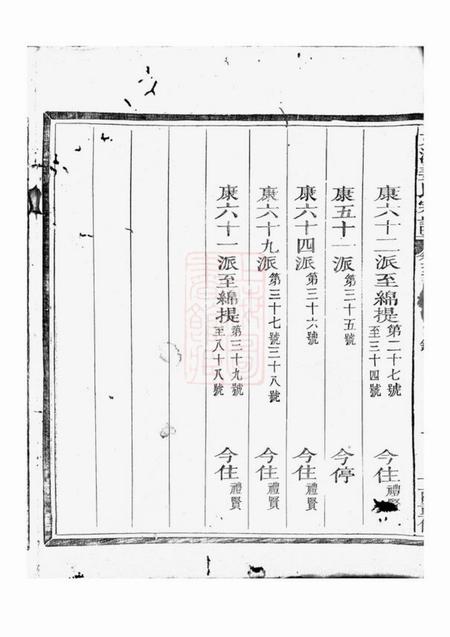 康六十二派至綿提第二十七號至三十四號 今住禮賢
康五十一派第三十五號 今停
康六十四派第三十六號 今住禮賢
康六十九派第三十七號三十八號 今住禮賢
康六十一派至綿提第三十九號至八十八號 今住禮賢